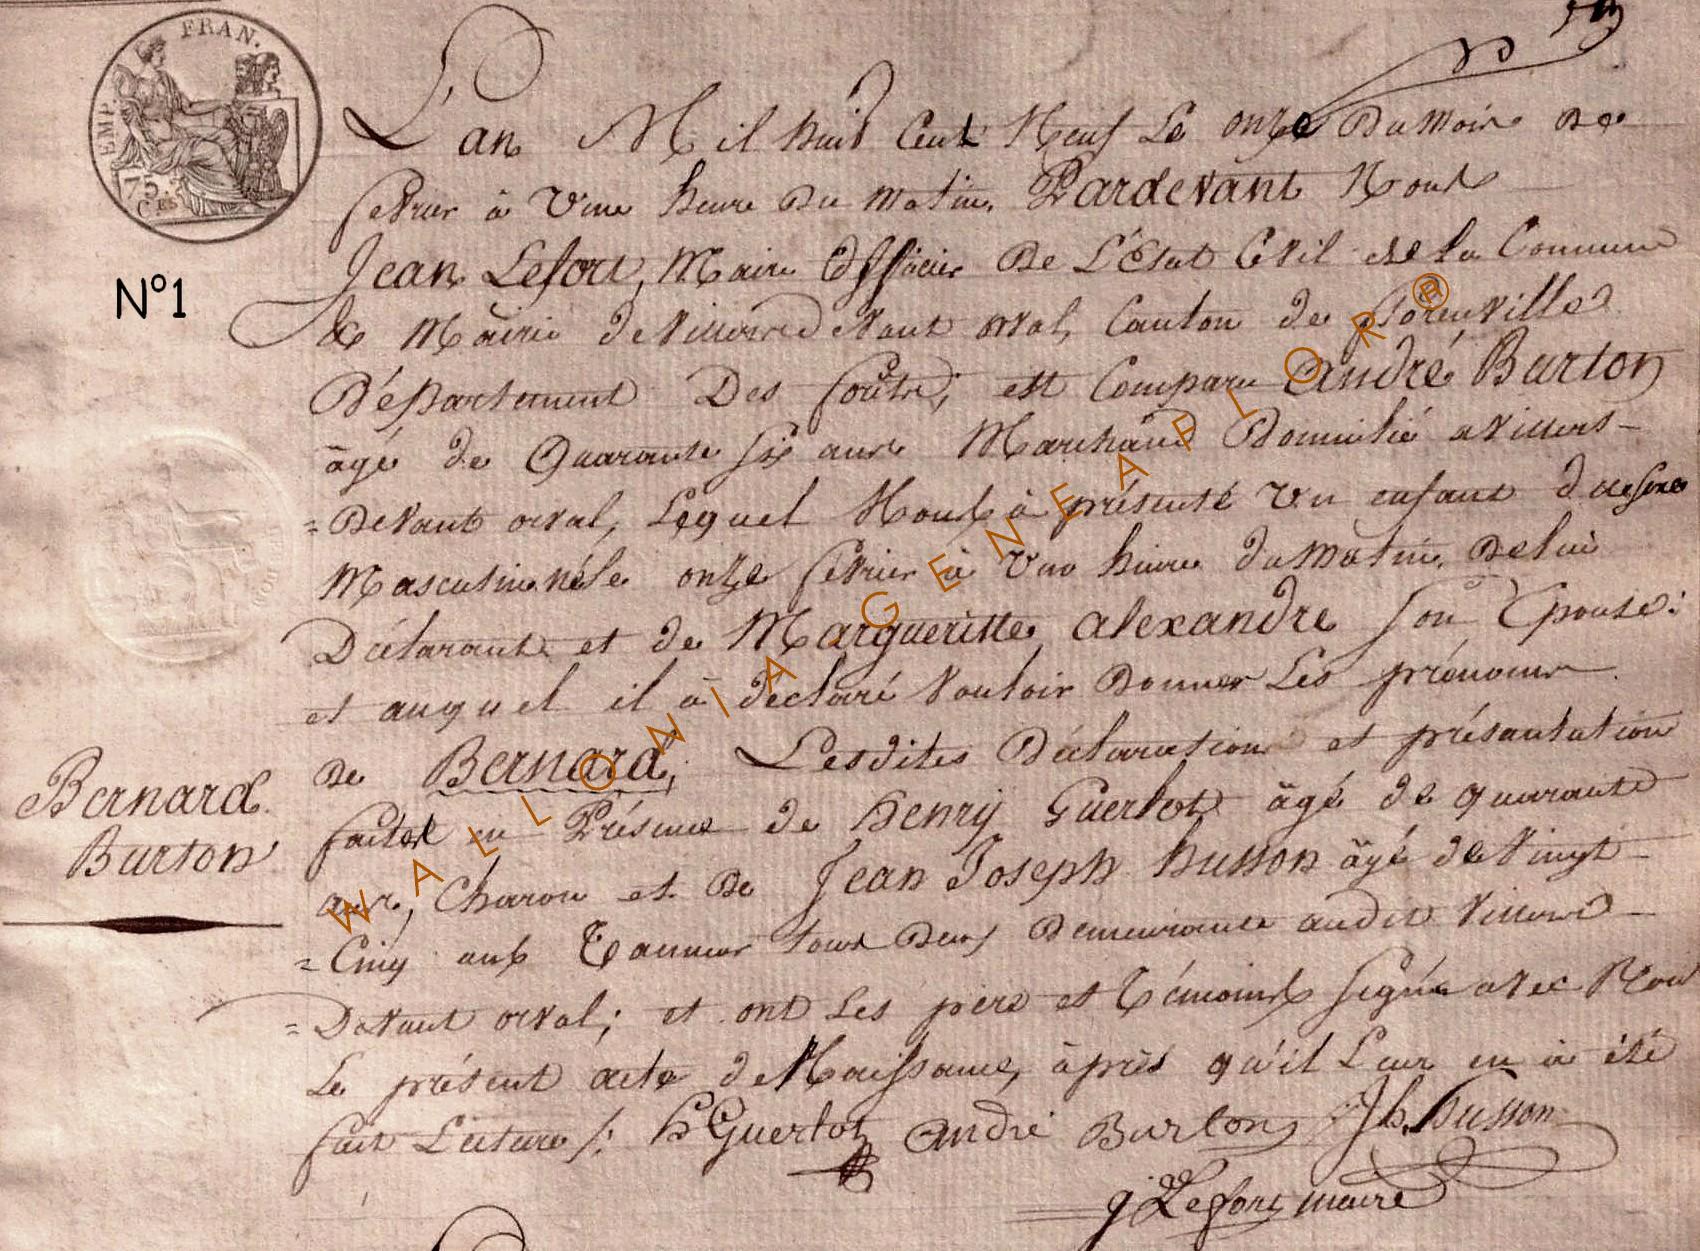 EMP. FRAN.
75.
C.ES
N°1
L'an Mil huit Cent Neuf Le onze Du Mois De
fevrier à Une heure Du Matin, Pardevant Nous
Jean Lefort, Maire Officier De L'État Civil de la Commune
& Mairie de Villers Devant orval, Canton de florenville
Département Des forêts, est Comparu andré Burton
âgé de Quarante six ans Marchand Domicilié a Villers-
=Devant orval, Lequel Nous à présenté Un enfant du sexe
Masculin né le onze fevrier à Une heure du Matin, De lui
Déclarant et de Margueritte alexandre son Epouse:
et auquel il à declaré Vouloir Donner Les prénoms
De Bernard, Lesdites Déclaration et présantation
faites en Présence de henry Guerlot âgé de quarante
ans, Charon et De Jean Joseph husson âgé de Vingt-
=Cinq ans Tanneur tous Deux Demeurance audit Villers-
=Devant orval; et ont Les père et Témoins signé avec Nous
Le présent acte de Naissance, àprès qu'il Leur en à été
fait Lecture /:
h Guerlot andré Burton Jh. husson
j Lefort maire
Bernard
Burton
WALLONIA GENEAPLOR ®